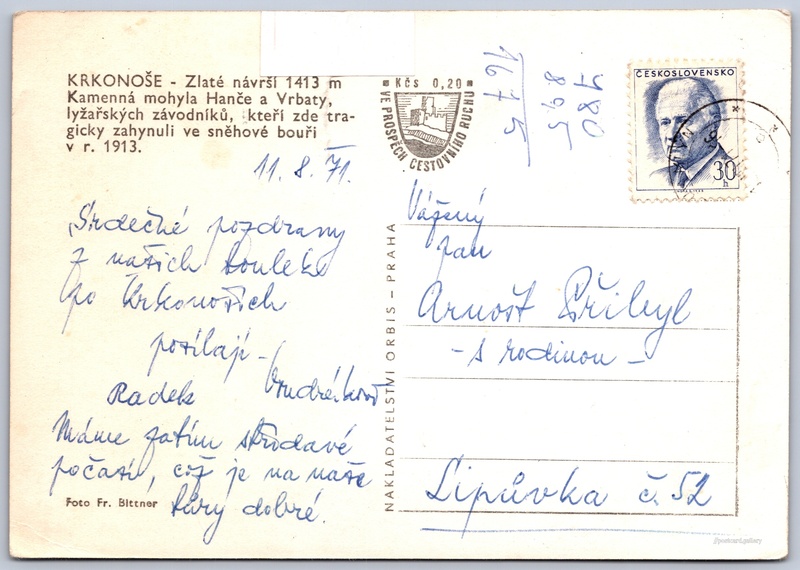 KRKONOŠE - Zlaté návrší 1413 m
Kamenná mohyla Hanče a Vrbaty,
lyžařských závodníků, kteří zde tra-
gicky zahynuli ve sněhové bouři
v r. 1913.
11. 8. 71.
Srdečné pozdravy
z našich toulek
po Krkonoších
posílají -
Radek Vondrákovi
Máme zatím střídavé
počasí, což je na naše
túry dobré.
Foto Fr. Bittner
Kčs 0,20
VE PROSPĚCH CESTOVNÍHO RUCHU
NAKLADATELSTVÍ ORBIS – PRAHA
780
895
1675
ČESKOSLOVENSKO
30
h
Vážený
pan
Arnošt Přibyl
- s rodinou -
Lipůvka č. 52